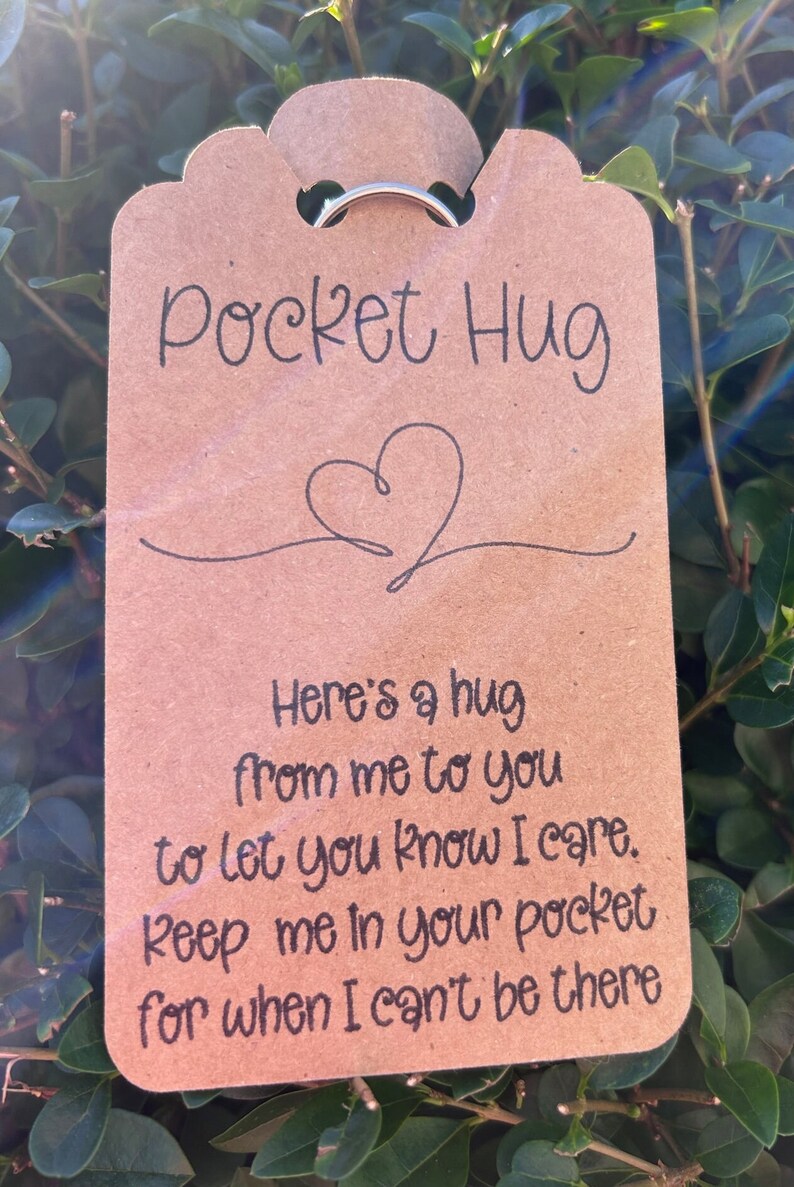 Pocket Hug
Here's a hug
from me to you
to let you know I care.
keep me in your pocket
for when I can't be there